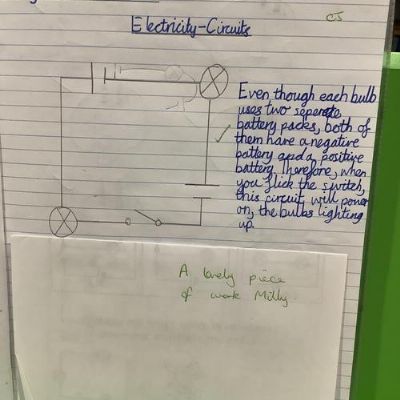 Electricity-Circuits
CJ
Even though each bulb
uses two seperate
battery packs, both of
them have a negative
battery and a positive
battery. Therefore, when
you flick the switch,
this circuit will power
on, the bulbs lighting
up.
A lovely piece
of work Milly.